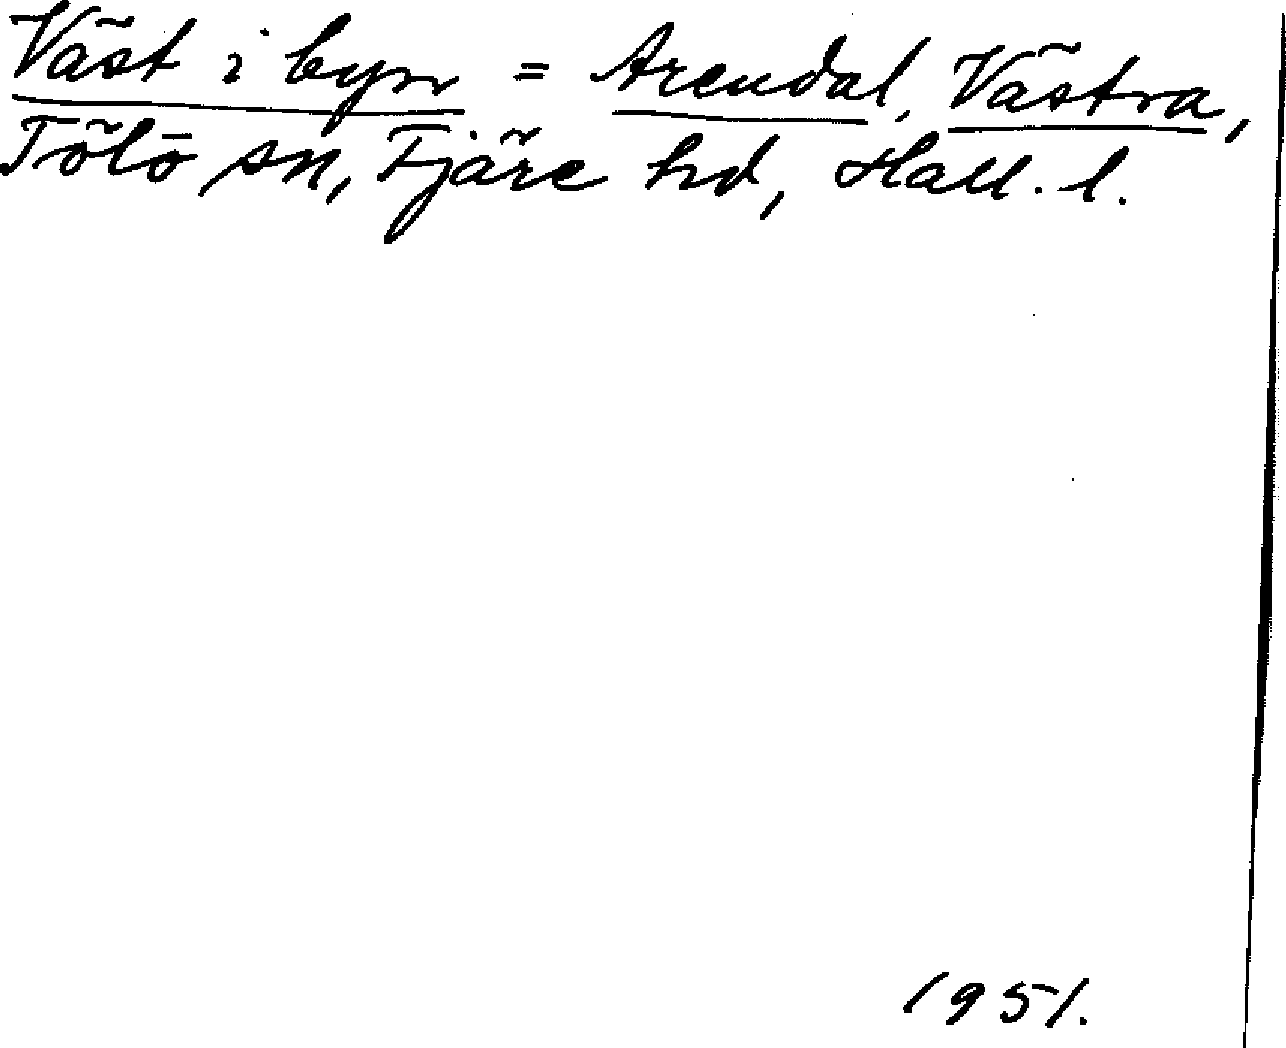 Väst i byn = Arendal, Västra,
Tölö sn, Fjäre hd, Hall. l.
1951.